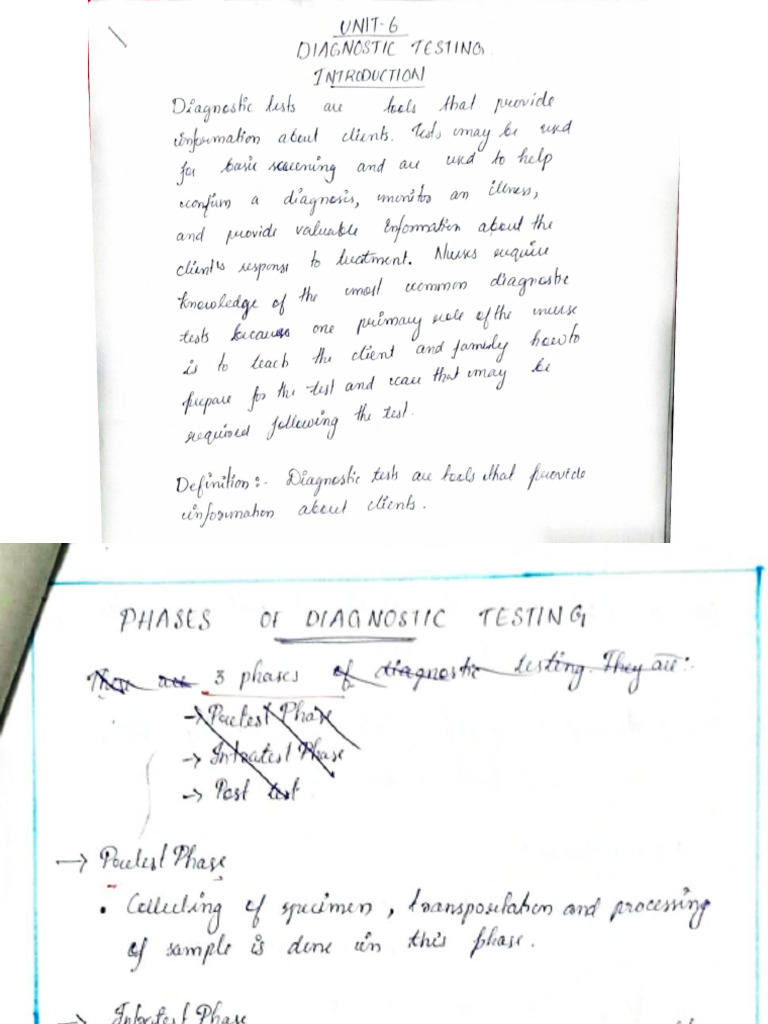 UNIT-6
DIAGNOSTIC TESTING
INTRODUCTION
Diagnostic tests are tools that provide
information about clients. Tests may be used
for basic screening and are used to help
confirm a diagnosis, monitor an illness,
and provide valuable Information about the
client's response to treatment. Nurses require
knowledge of the most common diagnostic
tests because one primary role of the nurse
is to teach the client and family how to
prepare for the test and care that may be
required following the test.
Definition:- Diagnostic tests are tools that provide
information about clients.
PHASES OF DIAGNOSTIC TESTING
There are 3 phases of diagnostic testing. They are:-
→ Pretest Phase
→ Intratest Phase
→ Post test
→ Pretest Phase
• Collecting of specimen, transportation and processing
of sample is done in this phase.
→ Intratest Phase